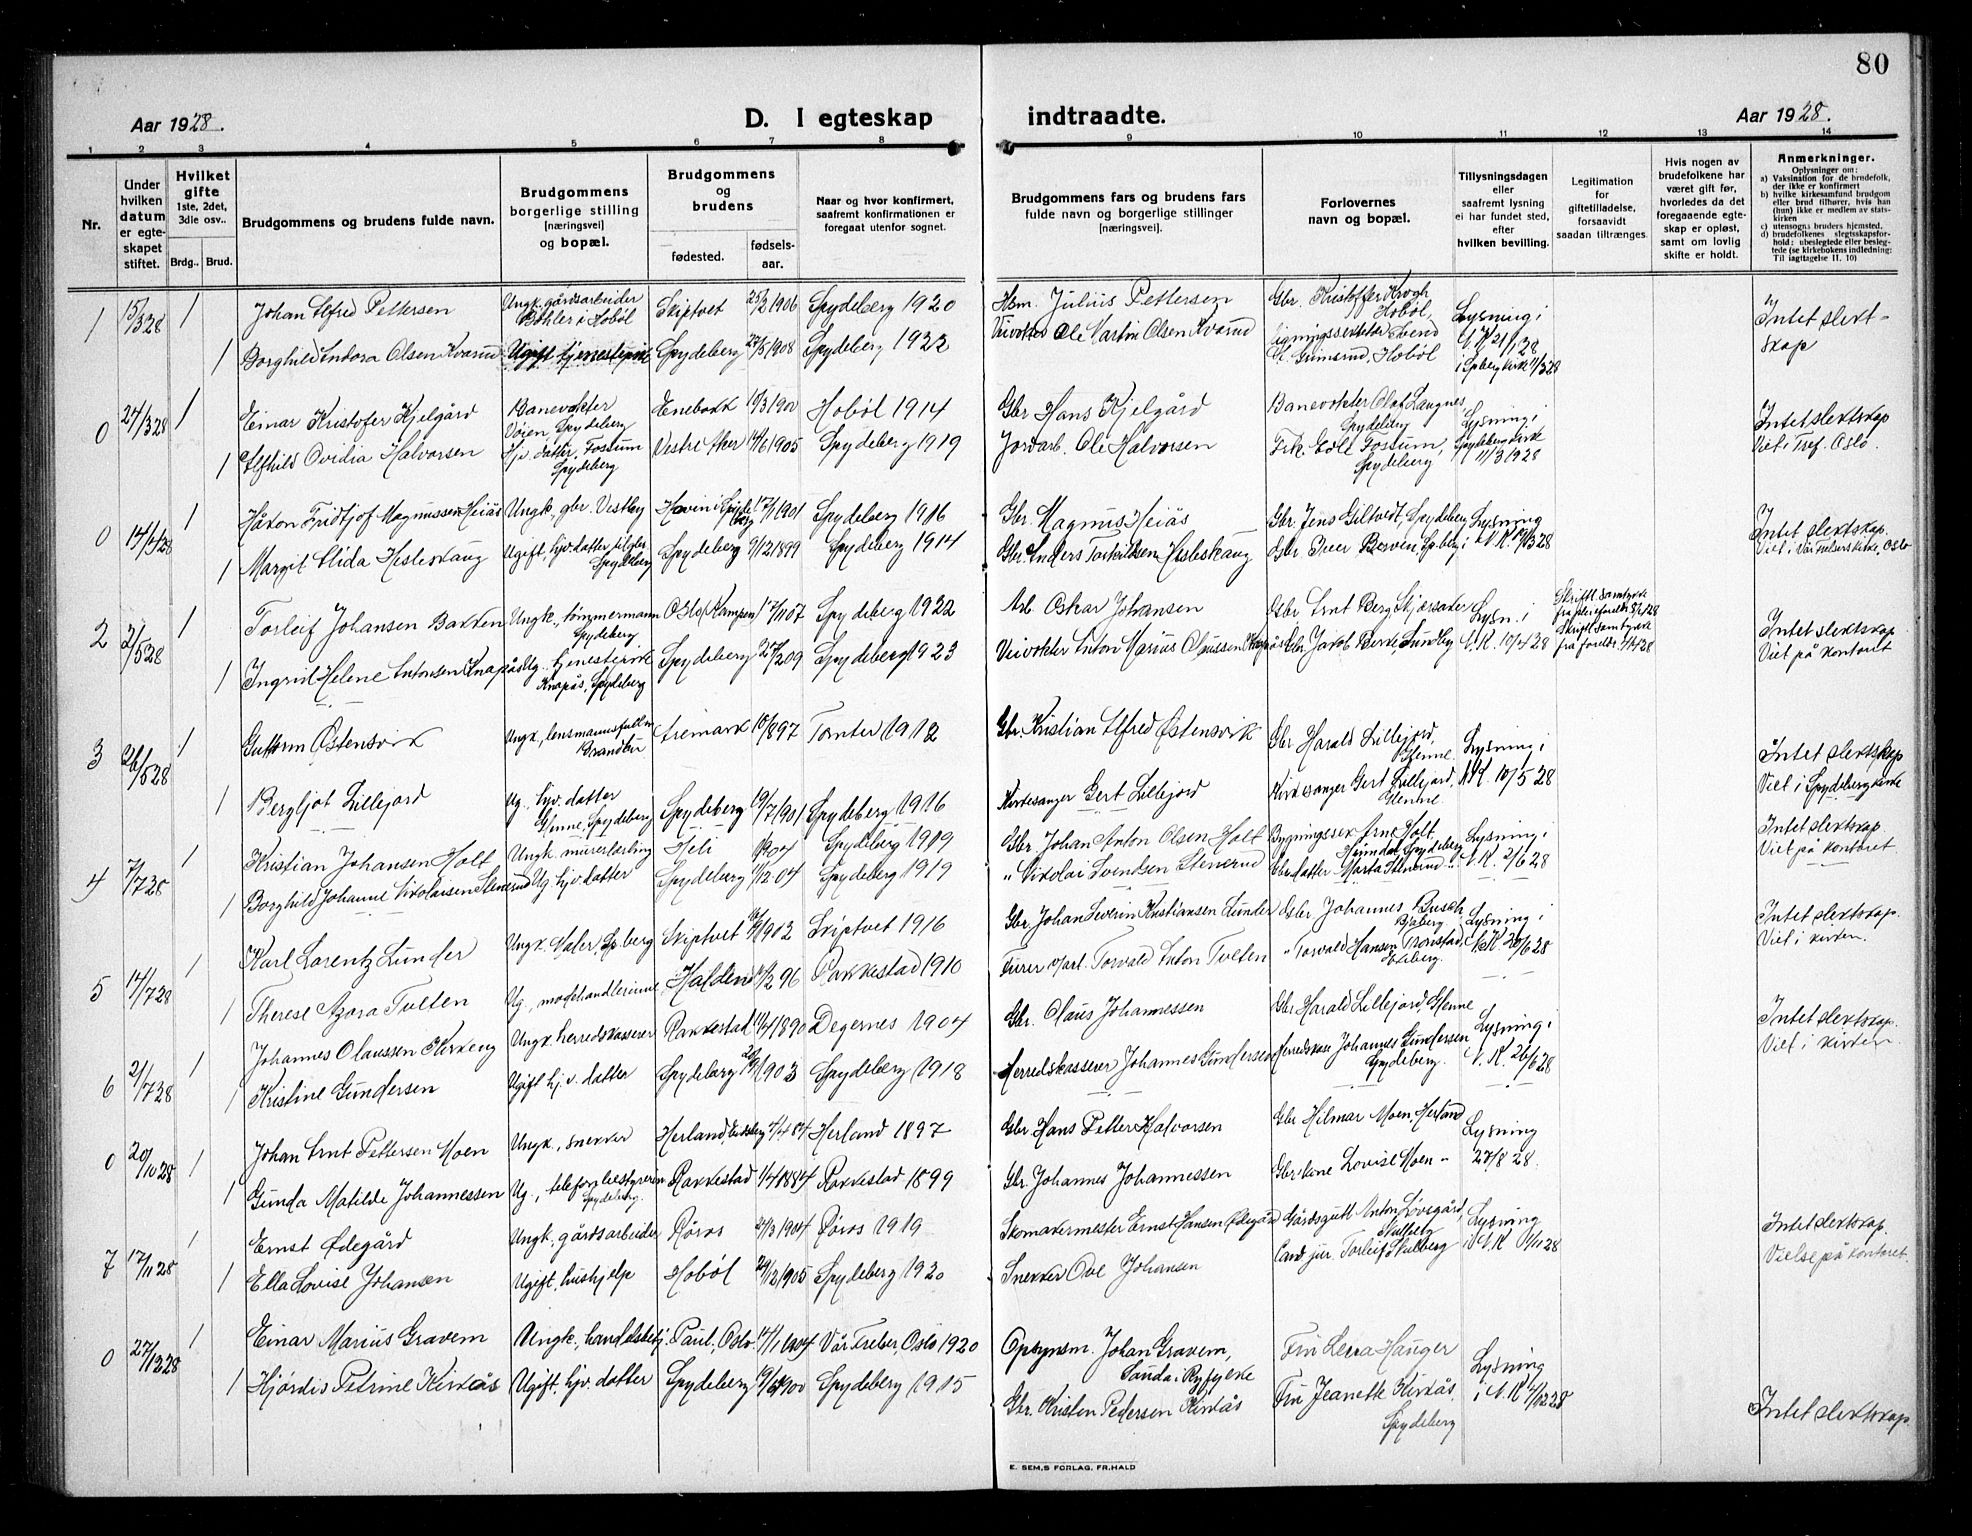 80
Aar 1928.
D. I egteskap
indtraadte.
Aar 1928.
1 2 3 4 5 6 7 8 9 10 11 12 13 14
Nr.
Under hvilken datum er egteskapet stiftet.
Hvilket gifte 1ste, 2det, 3die osv..
Brdg.. Brud.
Brudgommens og brudens fulde navn.
Brudgommens borgerlige stilling [næringsvei] og bopæl.
Brudgommens og brudens
fødested.
fødsels-aar.
Naar og hvor konfirmert, saafremt konfirmationen er foregaat utenfor sognet.
Brudgommens fars og brudens fars fulde navn og borgerlige stillinger [næringsvei].
Forlovernes navn og bopæl.
Tillysningsdagen eller saafremt lysning ei har fundet sted, efter hvilken bevilling.
Legitimation for giftetilladelse, forsaavidt saadan tiltrænges.
Hvis nogen av brudefolkene har været gift før, hvorledes da det foregaaende egteskap er opløst, samt om lovlig skifte er holdt.
Anmerkninger.
Oplysninger om:
a) Vaksination for de brudefolk, der ikke er konfirmert
b) hvilke kirkesamfund brudgom eller brud tilhører, hvis han (hun) ikke er medlem av statskirken
c) utensogns bruders hjemsted.
d) brudefolkenes slegtsskapsforhold: ubeslegtede eller beslegtede (se kirkebokens indledning: Til iagttagelse II. 10)
1 15/3 28 1 Johan Alfred Pettersen Ungk. gårdsarbeider Bøhler i Hobøl Skiptvet 25/2 1906 Spydeberg 1920 Hsm. Julius Pettersen Gbr. Kristoffer Krogh Hobøl, Lysning i Intet slekt-
1 Borghild Indora Olsen Kvarud Ugift tjenestepike Spydeberg 27/5 1908 Spydeberg 1922 Veivokter Ole Martin Olsen Kvarud Gunnsrud, Hobøl i Spbergkirke 11/3 28 skap
0 24/3 28 1 Einar Kristofer Kjelgård Banevokter Vøien Spydeberg Enebakk 10/3 1900 Hobøl 1914 Gbr Hans Kjelgård Banevokter Olaf Langnes, Spydeberg Lysning i Intet slektskap
1 Alfhild Ovidia Halvorsen Hjv. datter, Fossum Spydeberg Vestre Aker 14/6 1905 Spydeberg 1919 Jordarb. Ole Halvorsen Frk. Edle Fossum, Spydeberg Spydeberg kirke 11/3 1928 Viet i Oslo.
0 14/4 28 1 Håkon Fridtjof Magnussen Heiås Ungk., gbr. Vestby Hovin i Spydeberg 17/1 1901 Spydeberg 1916 Gbr. Magnus Heiås Gbr. Jens Giltvedt, Spydeberg Lysning Intet slektskap.
1 Margit Alida Hesleskaug Ugift, hjv. datter Spydeberg Spydeberg 9/12 1899 Spydeberg 1914 Gbr. Anders Hesleskaug Gbr. Iver Berven, Spbrg i N.K. 28 Viet i Vår Frelsers kirke, Oslo
2 2/5 28 1 Torleif Johansen Bakken Ungk., tømmermann Spydeberg Oslo (Kampen) 17/11 07 Spydeberg 1922 Arb. Oskar Johansen Gbr. Arnt Berg, Lysn. i Skriftl. samtykke Intet slektskap
1 Ingrid Helene Antonsen Knapås Ug. tjenestepike Knapås, Spydeberg Spydeberg 27/2 09 Spydeberg 1923 Veivokter Anton Marius Gbr. Jacob Berke, Sundby N.K. 10/4 28 Skriftl. samtykke fra foreldr. Viet på kontoret
3 26/5 28 1 Guttorm Østensvik Ungk., lensmannsfullm. Aremark 10/ 897 Tomter 1912 Gbr. Kristian Alfred Østensvik Gbr. Harald Lillejord, Glenne. Lysning i Intet slektskap
1 Bergljot Lillejord Ug. hjv. datter Glenne, Spydeberg Spydeberg 19/7 1901 Spydeberg 1916 Kirkesanger Gert Lillejord Kirkesanger Gert Lillejord, Glenne. N.K. 10/5 28 Viet i Spydeberg kirke
4 7/7 28 1 Kristian Johansen Holt Ungk. murerlærling Heli 1904 Spydeberg 1919 Gbr. Johan Anton Olsen Holt Bygningssnekker Arne Holt, Spydeberg Lysning i Intet slektskap
1 Borghild Johanne Nikolaisen Stenerud Ug hjv. datter Spydeberg /12 04 Spydeberg 1919 " Nikolai Svendsen Stenerud Gbr. datter Marta Stenerud N.K. 2/6 28 Viet på kontoret.
5 14/7 28 1 Karl Lorentz Lunder Ungk. Maler, Spberg Skiptvet 1902 Skiptvet 1916 Gbr. Johan Severin Kristiansen Lunder Gbr. Johannes Busch Lysning i Intet slektskap.
1 Therese Azora Tvlten Ug., motehandlerinne Halden /2 96 Rakkestad 1910 Furer Torvald Anton Tvlten " Torvald Hansen Tronstad, N.K. 20/6 28 Viet i kirken.
6 21/7 28 1 Johannes Olaussen Kirkeng Ungk. herredskasserer Rakkestad 11/4 1890 Degernes 1904 Gbr. Olaus Johannessen Gbr Harald Lillejord, Glenne Lysning i Intet slektskap.
1 Kristine Gundersen Ugift hj. v. datter Spydeberg 1903 Spydeberg 1918 Herredskasserer Johannes Gundersen Herredskass. Johannes Gundersen Spydeberg. N.K. 26/6 28 Viet i kirken
0 20/10 28 1 Johan Arnt Pettersen Moen Ungk., snekker Herland, Eidsberg 7/4 84 Herland 1897 Gbr Hans Petter Halvorsen Gbr Hilmar Moen, Herland Lysning
1 Gunda Matilde Johannessen Ug., telefonbestyrerin. Spydeberg. Rakkestad 1/4 1884 Rakkestad 1899 Gbr. Johannes Johannessen Gbr. kone Lovise Moen 27/8 28.
7 17/11 28 1 Ernst Ødegård Ungk., gårdsarbeider Røros 21/3 1904 Røros 1919 Skomakermester Ernst Hansen Ødegård Gårdsgutt Anton Løvsgård, Skulberg Lysning Intet slektskap.
1 Ella Lovise Johansen Ugift, hushjelp Hobøl 29/12 1905 Spydeberg 1920 Snekker Ove Johansen Cand jur. Torleif Skulberg i N.K. 28 Vielse på kontoret.
0 27/12 28 1 Einar Marius Gravem Ungk., handelsbetj. Paul., Oslo 14/1 1904 Vår Frelser, Oslo 1920 Opsynsm. Johan Gravem, Sauda i Ryfylke Frk Lerra Hauger Lysning
1 Hjørdis Petrine Kirkås Ugift, hjv. datter Spydeberg 1900 Spydeberg 1915 Gbr. Kristen Pedersen Kirkås Frk Jeanette Kirkås, Spydeberg i N.K. /12 28 Intet slektskap.
E. SEM,S FORLAG, FR.HALD